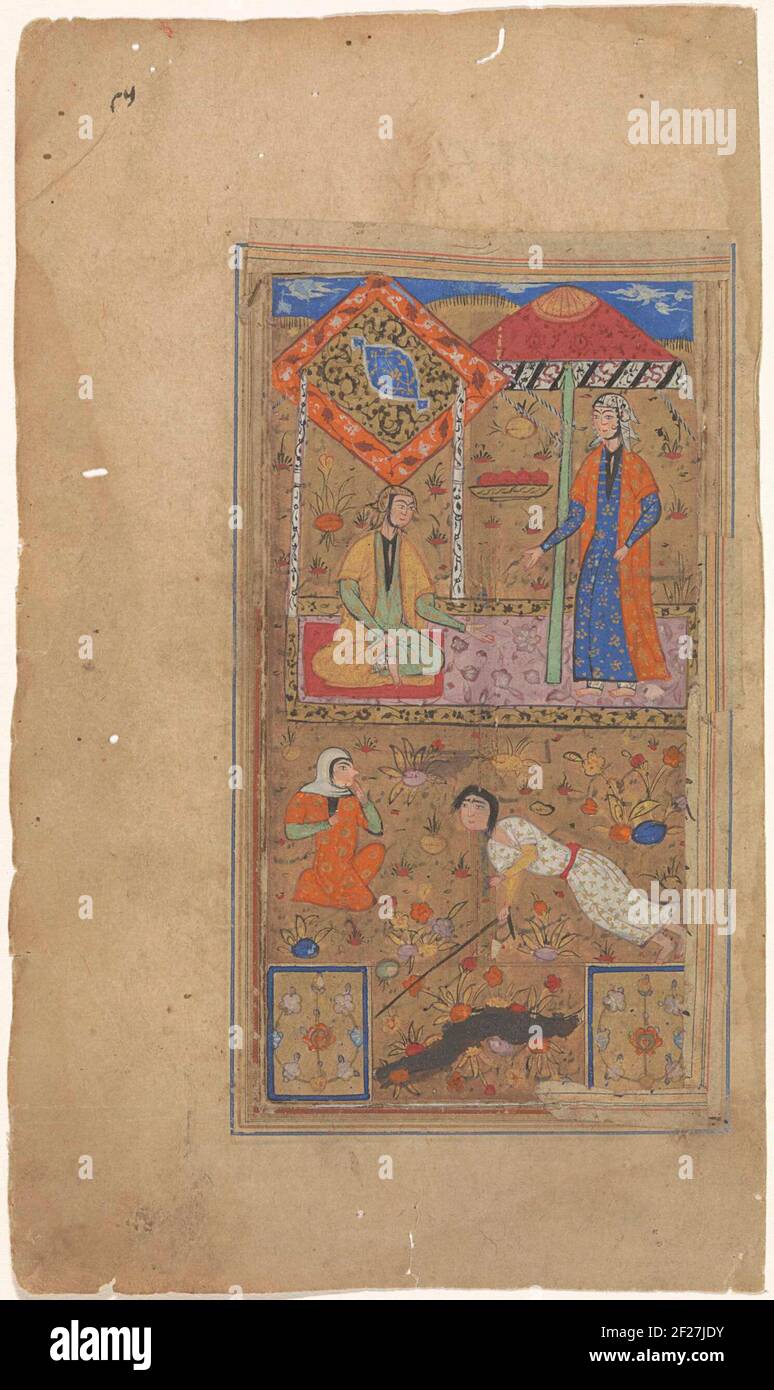 alamy
alamy
alamy
Image ID: 2F27JDY
www.alamy.com